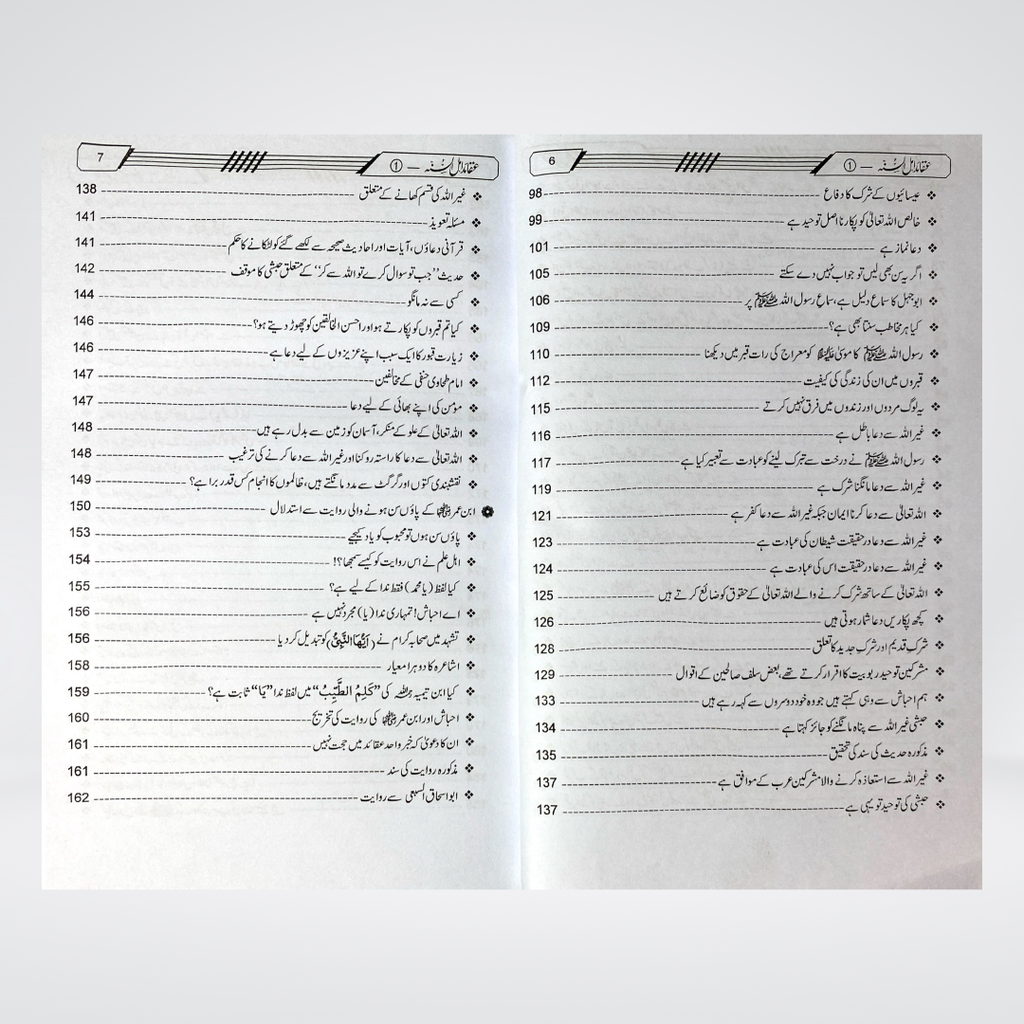 عقائد اہل السُّنّہ — ① 6
❖ عیسائیوں کے شرک کا دفاع 98
❖ خالص اللہ تعالیٰ کو پکارنا اصل توحید ہے 99
❖ دعا نماز ہے 101
❖ اگر یہ سن بھی لیں تو جواب نہیں دے سکتے 105
❖ ابوجہل کا سماع دلیل ہے، سماع رسول اللہ ﷺ پر 106
❖ کیا ہر مخاطب سنتا بھی ہے؟ 109
❖ رسول اللہ ﷺ کا موسیٰ علیہ السلام کو معراج کی رات قبر میں دیکھنا 110
❖ قبروں میں ان کی زندگی کی کیفیت 112
❖ یہ لوگ مردوں اور زندوں میں فرق نہیں کرتے 115
❖ غیر اللہ سے دعا باطل ہے 116
❖ رسول اللہ ﷺ نے درخت سے تبرک لینے کو عبادت سے تعبیر کیا ہے 117
❖ غیر اللہ سے دعا مانگنا شرک ہے 119
❖ اللہ تعالیٰ سے دعا کرنا ایمان جبکہ غیر اللہ سے دعا کفر ہے 121
❖ غیر اللہ سے دعا درحقیقت شیطان کی عبادت ہے 123
❖ غیر اللہ سے دعا درحقیقت اس کی عبادت ہے 124
❖ اللہ تعالیٰ کے ساتھ شرک کرنے والے اللہ تعالیٰ کے حقوق کو ضائع کرتے ہیں 125
❖ کچھ پکاریں دعا شمار ہوتی ہیں 126
❖ شرک قدیم اور شرک جدید کا تعلق 128
❖ مشرکین توحید ربوبیت کا اقرار کرتے تھے، بعض سلف صالحین کے اقوال 129
❖ ہم احباش سے وہی کہتے ہیں جو وہ خود دوسروں سے کہہ رہے ہیں 133
❖ حبشی غیر اللہ سے پناہ مانگنے کو جائز کہتا ہے 134
❖ مذکورہ حدیث کی سند کی تحقیق 135
❖ غیر اللہ سے استعاذہ کرنے والا مشرکین عرب کے موافق ہے 137
❖ حبشی کی توحید تو یہی ہے 137
عقائد اہل السُّنّہ — ① 7
❖ غیر اللہ کی قسم کھانے کے متعلق 138
❖ مسئلہ تعویذ 141
❖ قرآنی دعاؤں، آیات اور احادیث صحیحہ سے لکھے گئے کو لٹکانے کا حکم 141
❖ حدیث ”جب تو سوال کرے تو اللہ سے کر“ کے متعلق حبشی کا موقف 142
❖ کسی سے نہ مانگو 144
❖ کیا تم قبروں کو پکارتے ہو اور احسن الخالقین کو چھوڑ دیتے ہو؟ 146
❖ زیارت قبور کا ایک سبب اپنے عزیزوں کے لیے دعا ہے 146
❖ امام طحاوی حنفی کے مخالفین 147
❖ مؤمن کی اپنے بھائی کے لیے دعا 147
❖ اللہ تعالیٰ کے علو کے منکر، آسمان کو زمین سے بدل رہے ہیں 148
❖ اللہ تعالیٰ سے دعا کا راستہ روکنا اور غیر اللہ سے دعا کرنے کی ترغیب 148
❖ نقشبندی کتوں اور گرگٹ سے مدد مانگتے ہیں، ظالموں کا انجام کس قدر برا ہے؟ 149
❁ ابن عمر رضی اللہ عنہما کے پاؤں سن ہونے والی روایت سے استدلال 150
❖ پاؤں سن ہوں تو محبوب کو یاد کیجیے 153
❖ اہل علم نے اس روایت کو کیسے سمجھا؟! 154
❖ کیا لفظ (یا محمد) فقط ندا کے لیے ہے؟ 155
❖ اے احباش! تمہاری ندا (یا) مجرد نہیں ہے 156
❖ تشہد میں صحابہ کرام نے (أَيُّهَا النَّبِيُّ) کو تبدیل کر دیا 156
❖ اشاعرہ کا دوہرا معیار 158
❖ کیا ابن تیمیہ رحمہ اللہ کی ”كَلِمُ الطَّيِّبُ“ میں لفظ ندا ”يَا“ ثابت ہے؟ 159
❖ احباش اور ابن عمر رضی اللہ عنہما کی روایت کی تخریج 160
❖ ان کا دعویٰ کہ خبر واحد عقائد میں حجت نہیں 161
❖ مذکورہ روایت کی سند 161
❖ ابواسحاق السبیعی سے روایت 162